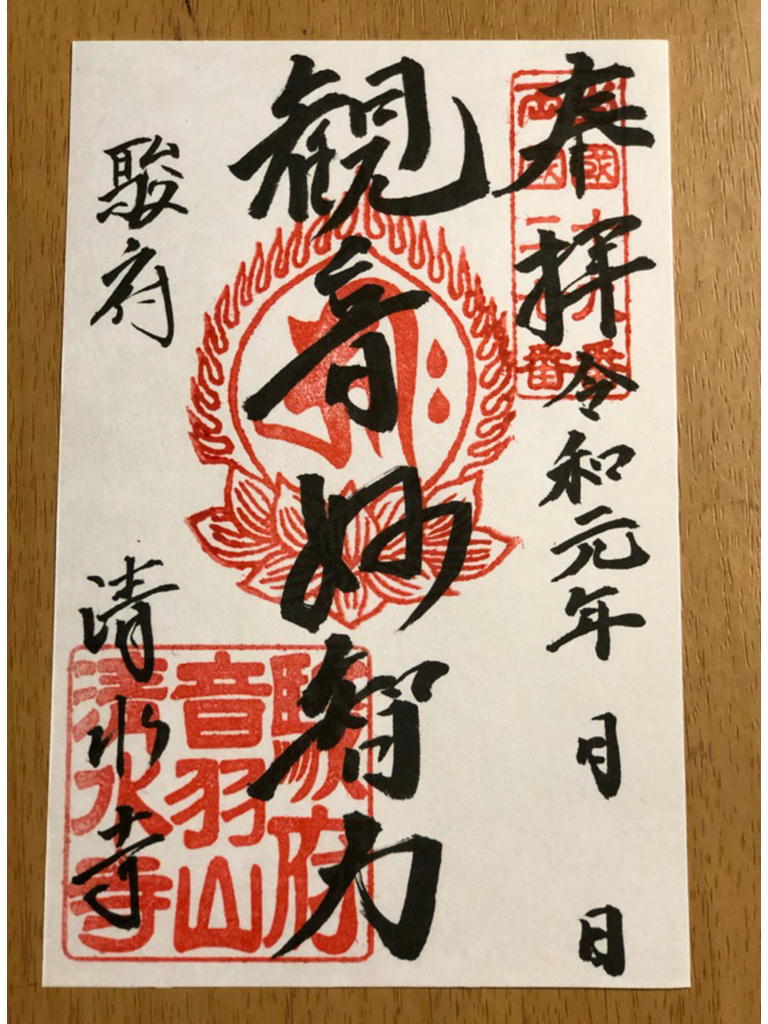 奉拝 令和元年 月 日
観音妙智力
駿府 清水寺
駿府
音羽山
清水寺